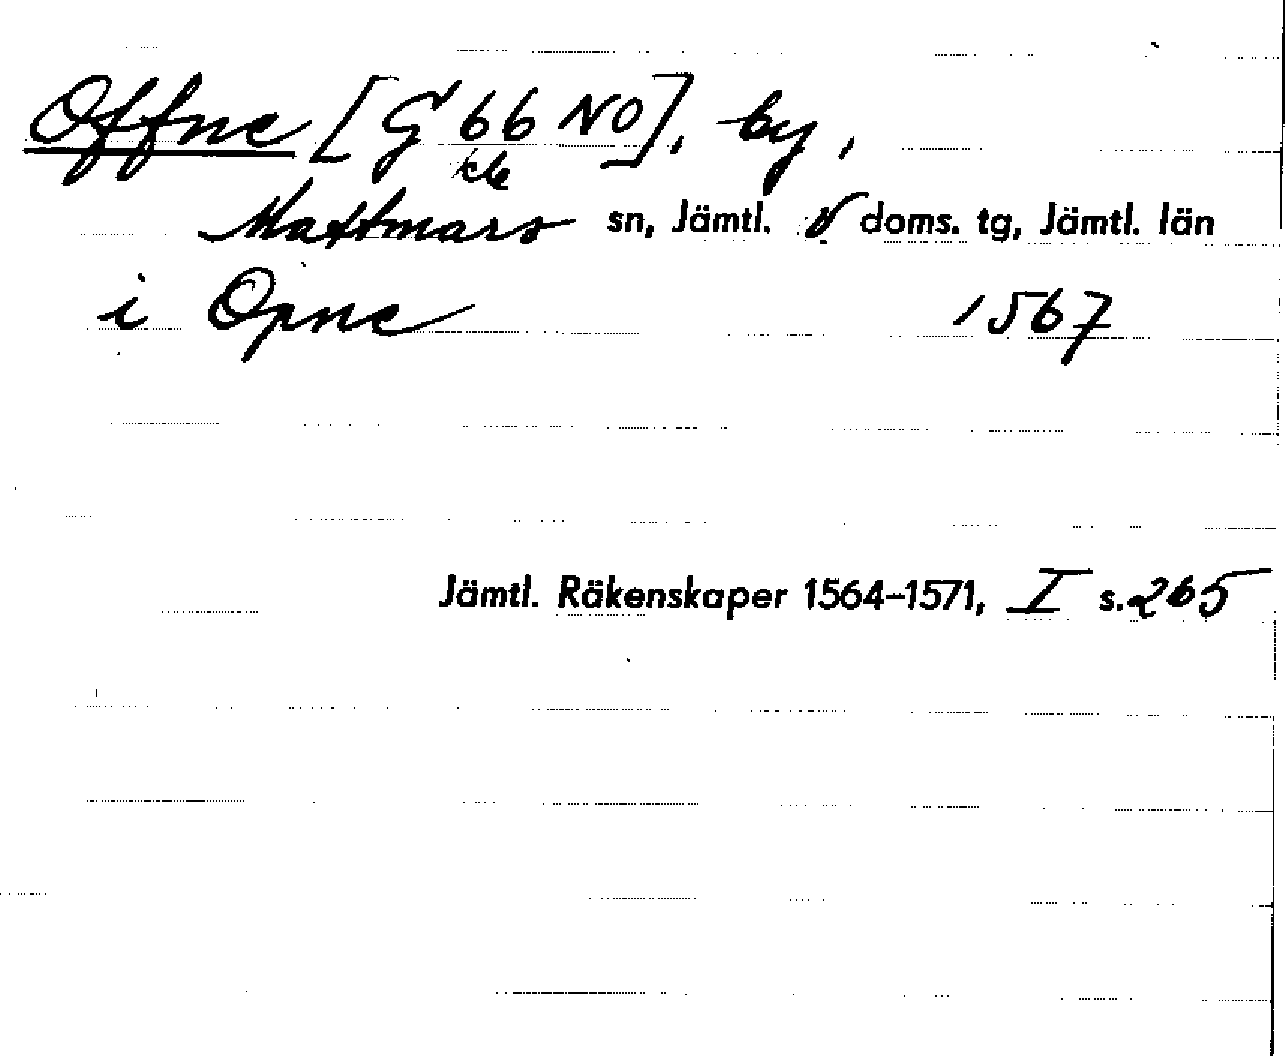 Offne [G 66 NO], by,
cb
Mattmars sn, Jämtl. V doms. tg, Jämtl. län
i Opne 1567
Jämtl. Räkenskaper 1564–1571, I s. 265